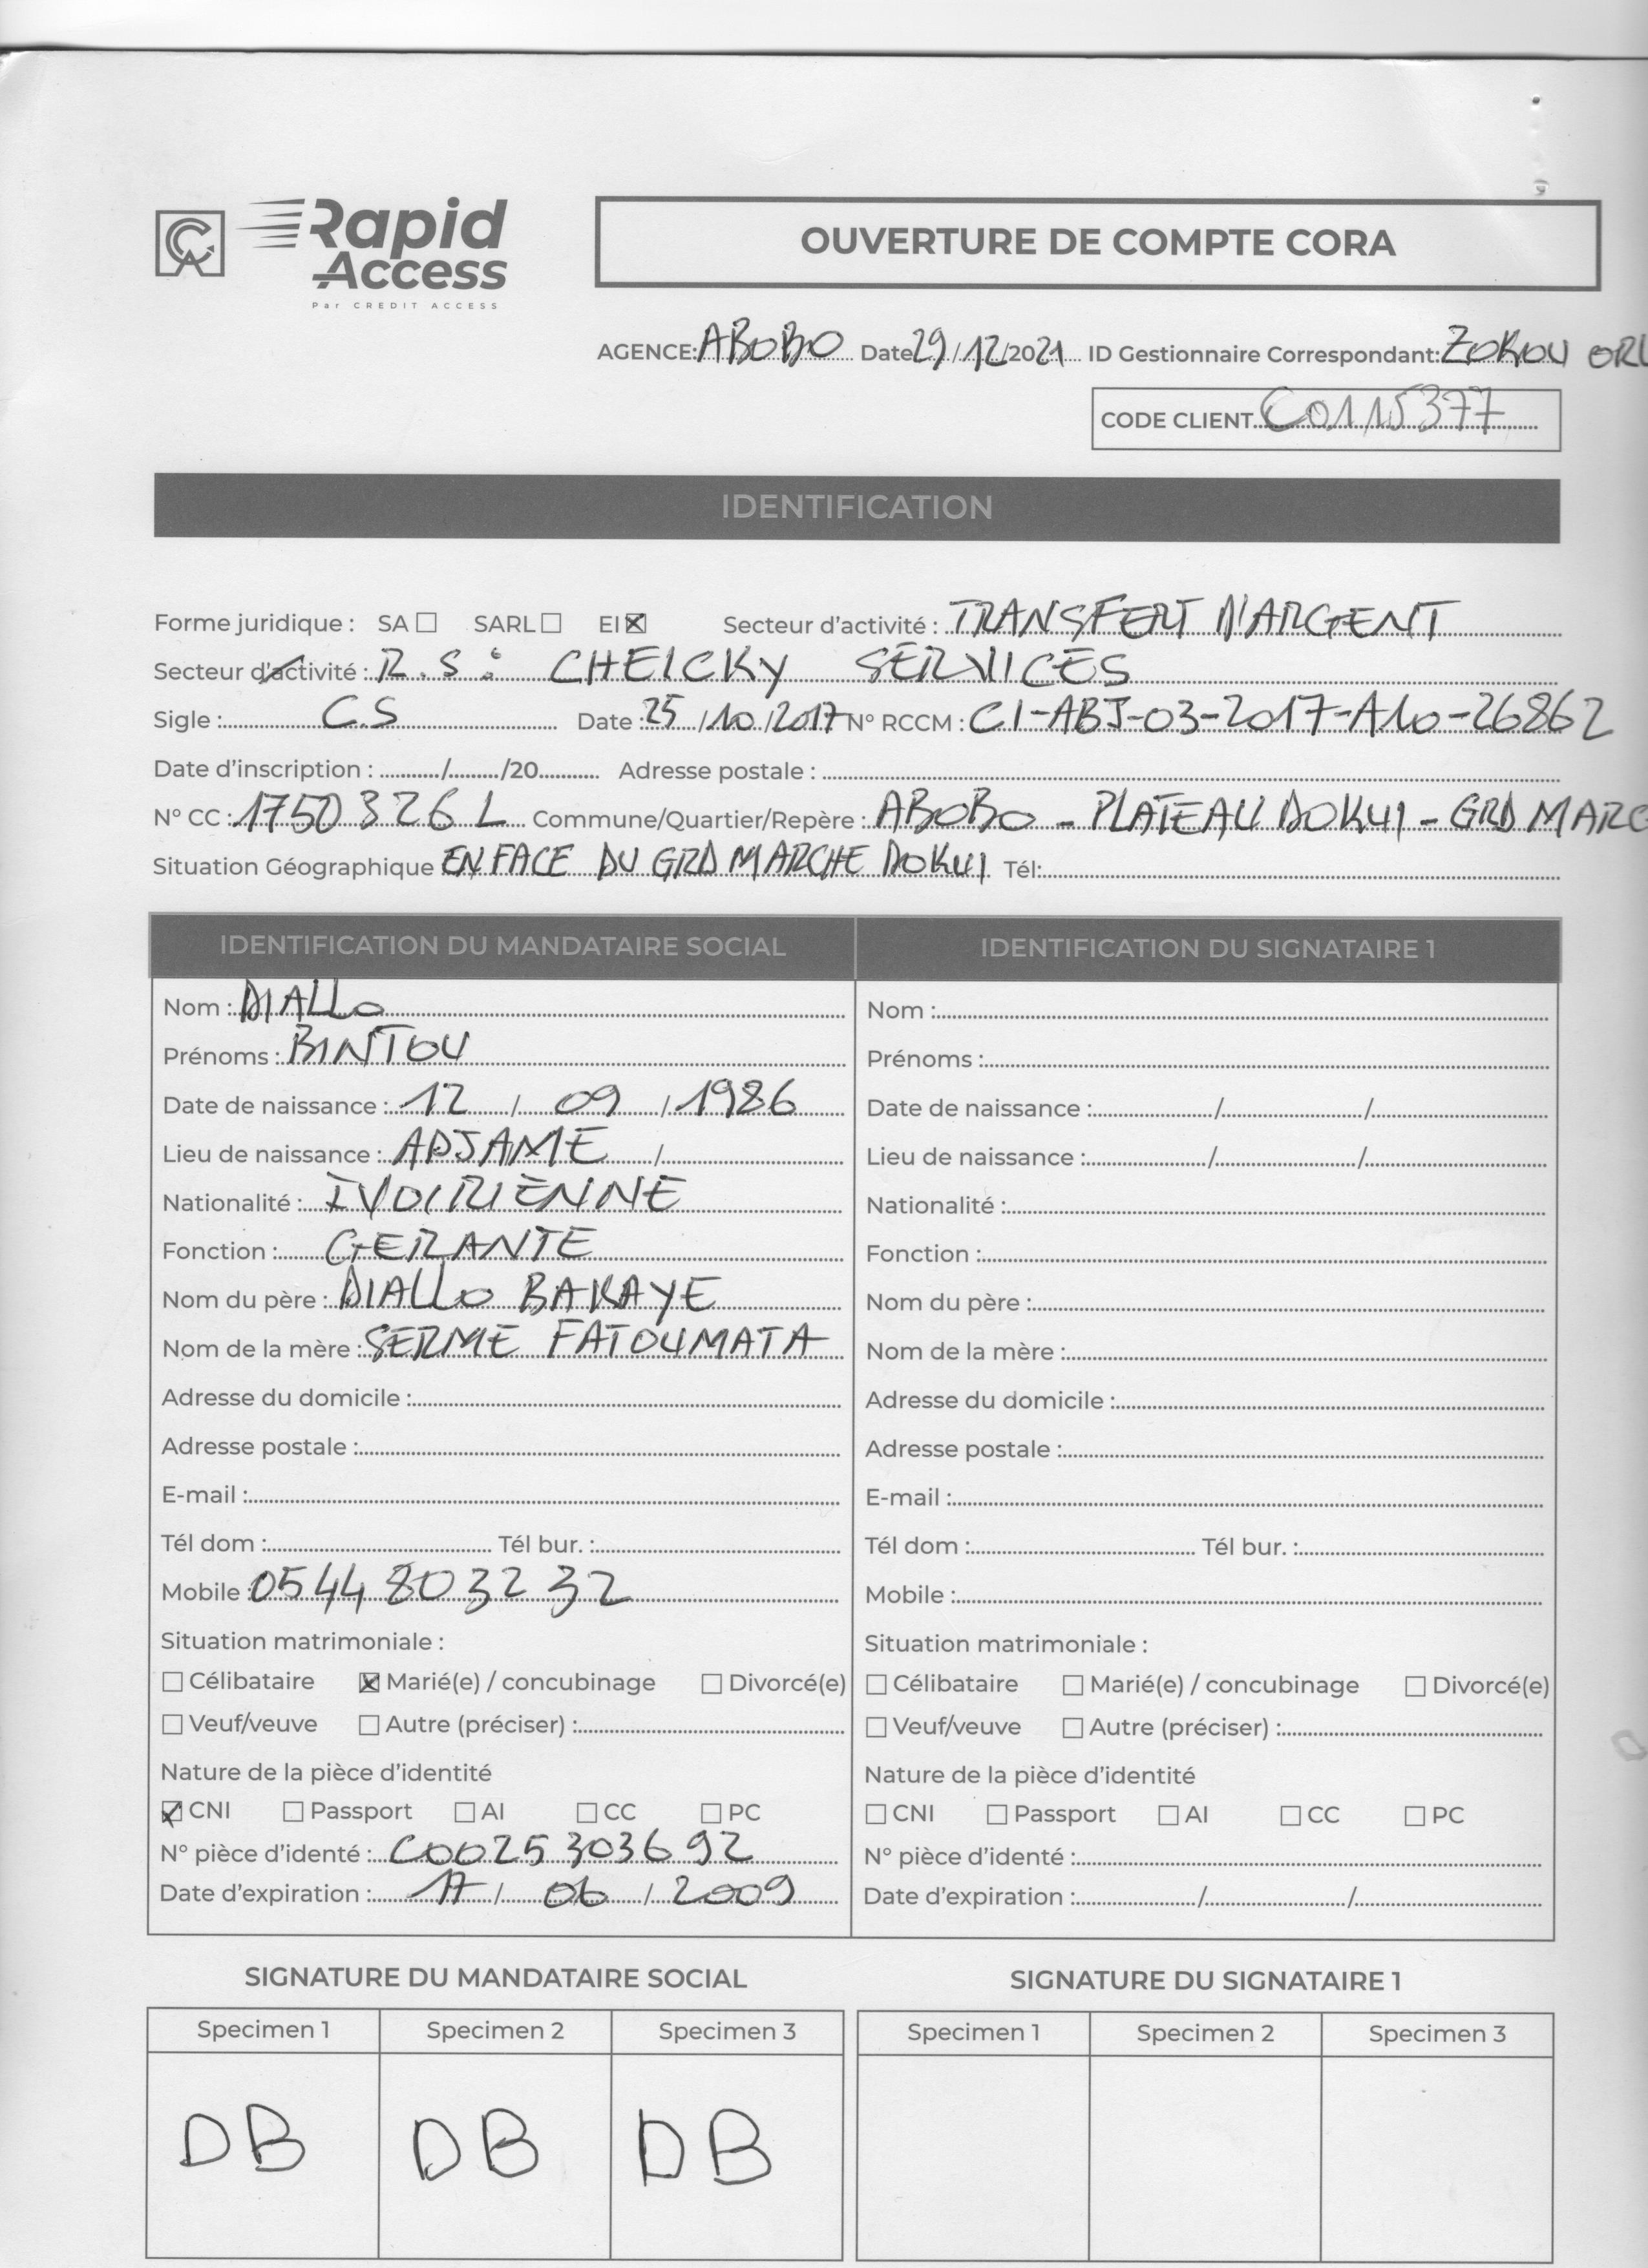 Rapid
Access
Par CREDIT ACCESS
OUVERTURE DE COMPTE CORA
AGENCE: ABOBO Date 29/12/2021 ID Gestionnaire Correspondant: ZOKOU
CODE CLIENT C0115377
IDENTIFICATION
Forme juridique : SA ☐ SARL ☐ EI ☒ Secteur d'activité : TRANSFERT D'ARGENT
Secteur d'activité : R.S : CHEICKY SERVICES
Sigle : C.S Date : 25/10/2017 N° RCCM : CI-ABJ-03-2017-A10-26862
Date d'inscription : ........./........./20........... Adresse postale :
N° CC : 1750326 L Commune/Quartier/Repère : ABOBO - PLATEAU DOKUI - GRD MARC
Situation Géographique EN FACE DU GRD MARCHE DOKUI Tél:
IDENTIFICATION DU MANDATAIRE SOCIAL IDENTIFICATION DU SIGNATAIRE 1
Nom : DIALLO Nom :
Prénoms : BINTOU Prénoms :
Date de naissance : 12 / 09 / 1986 Date de naissance : / /
Lieu de naissance : ADJAME / Lieu de naissance : / /
Nationalité : IVOIRIENNE Nationalité :
Fonction : GERANTE Fonction :
Nom du père : DIALLO BAKAYE Nom du père :
Nom de la mère : SERME FATOUMATA Nom de la mère :
Adresse du domicile : Adresse du domicile :
Adresse postale : Adresse postale :
E-mail : E-mail :
Tél dom : Tél bur. : Tél dom : Tél bur. :
Mobile : 0544803232 Mobile :
Situation matrimoniale : Situation matrimoniale :
☐ Célibataire ☒ Marié(e) / concubinage ☐ Divorcé(e) ☐ Célibataire ☐ Marié(e) / concubinage ☐ Divorcé(e)
☐ Veuf/veuve ☐ Autre (préciser) : ☐ Veuf/veuve ☐ Autre (préciser) :
Nature de la pièce d'identité Nature de la pièce d'identité
☒ CNI ☐ Passport ☐ AI ☐ CC ☐ PC ☐ CNI ☐ Passport ☐ AI ☐ CC ☐ PC
N° pièce d'identé : C0025303692 N° pièce d'identé :
Date d'expiration : 17 / 06 / 2009 Date d'expiration : / /
SIGNATURE DU MANDATAIRE SOCIAL SIGNATURE DU SIGNATAIRE 1
Specimen 1 Specimen 2 Specimen 3 Specimen 1 Specimen 2 Specimen 3
DB DB DB